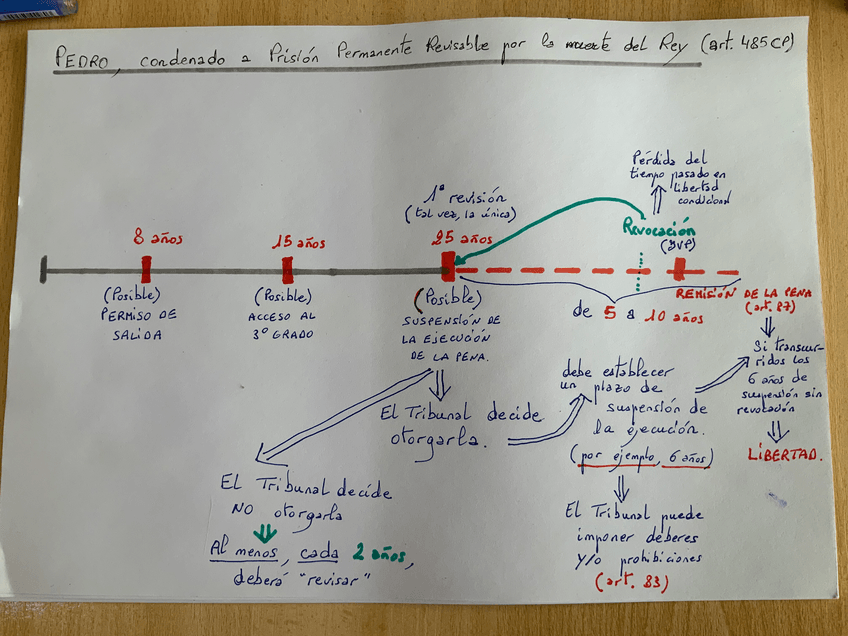 PEDRO, condenado a Prisión Permanente Revisable por la muerte del Rey (art. 485 CP)
Pérdida del
tiempo pasado en
libertad
condicional
1ª revisión
(tal vez, la única)
Revocación
(JVP)
8 años
15 años
25 años
(Posible)
PERMISO DE
SALIDA
(Posible)
ACCESO AL
3º GRADO
(Posible)
SUSPENSIÓN DE
LA EJECUCIÓN
DE LA PENA.
de 5 a 10 años
REMISIÓN DE LA PENA
(art. 87)
Si transcur-
ridos los
6 años de
suspensión sin
revocación
LIBERTAD.
El Tribunal decide
otorgarla.
debe establecer
un plazo de
suspensión de
la ejecución.
(por ejemplo, 6 años)
El Tribunal puede
imponer deberes
y/o prohibiciones
(art. 83)
El Tribunal decide
NO otorgarla
Al menos, cada 2 años,
deberá "revisar"